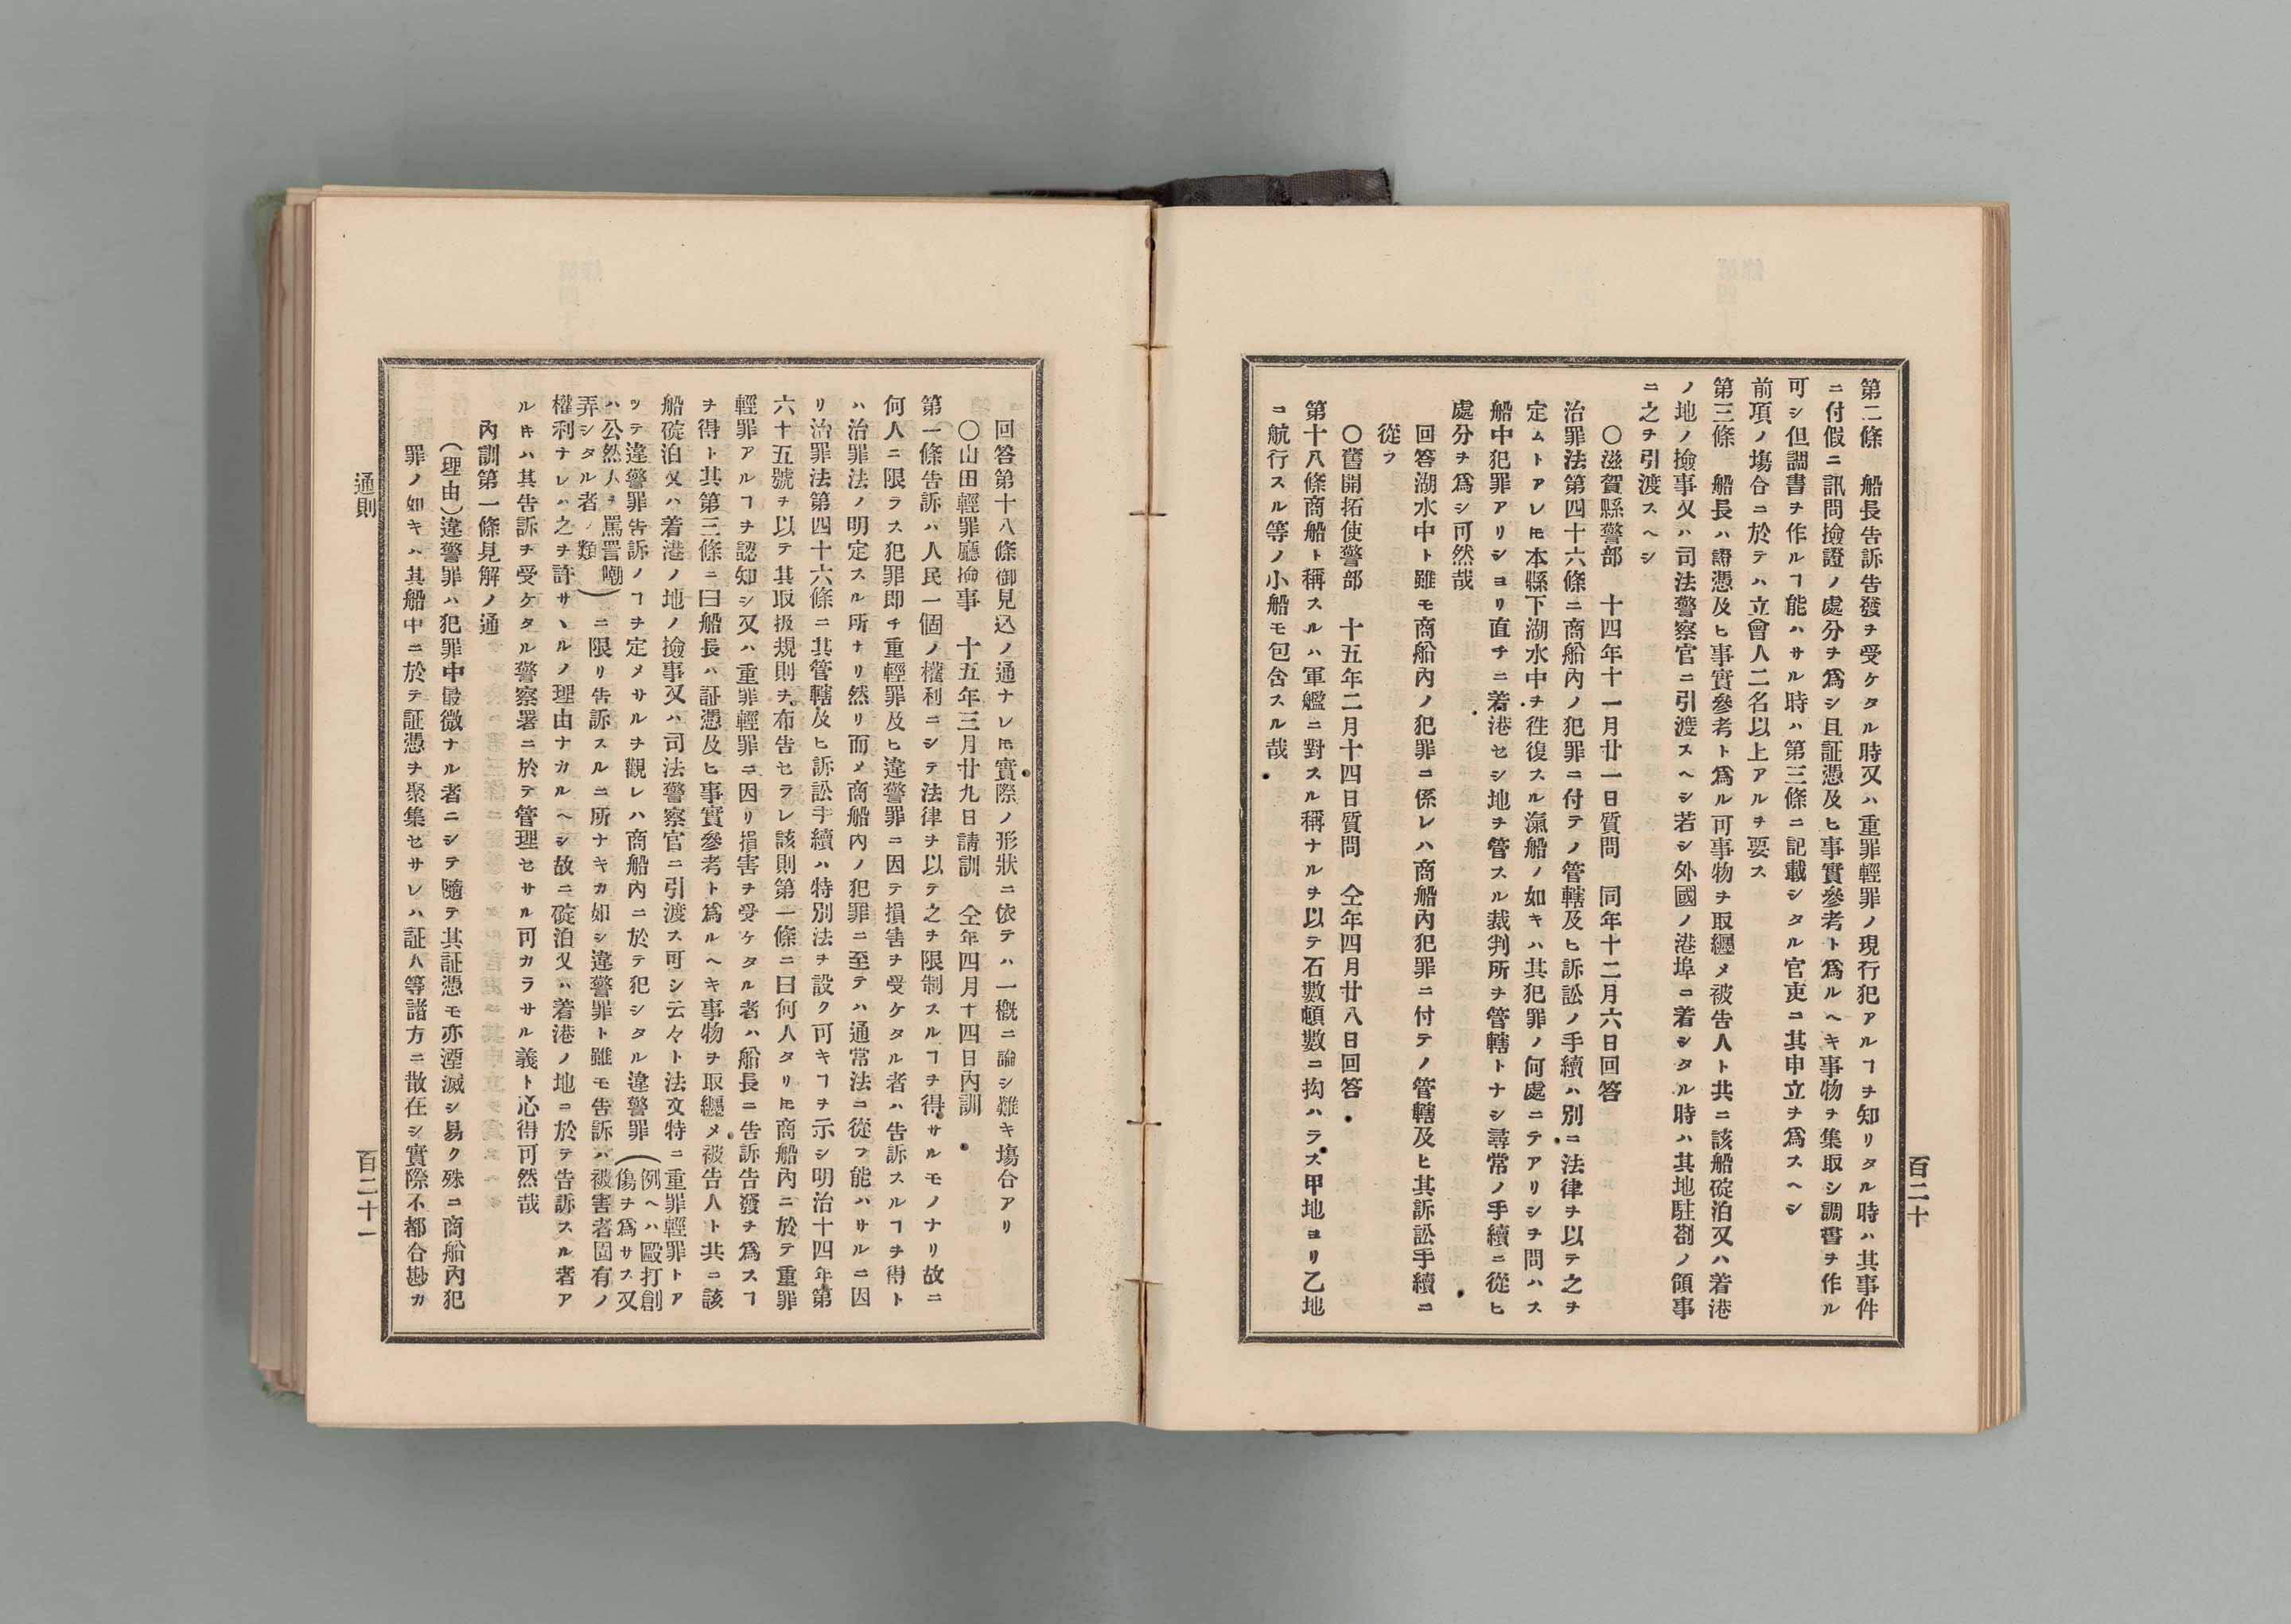 第二條　船長告訴告發ヲ受ケタル時又ハ重罪輕罪ノ現行犯アルヿヲ知リタル時ハ其事件
ニ付假ニ訊問撿證ノ處分ヲ爲シ且証憑及ヒ事實參考ト爲ルヘキ事物ヲ集取シ調書ヲ作ル
可シ但調書ヲ作ルヿ能ハサル時ハ第三條ニ記載シタル官吏ニ其申立ヲ爲スヘシ
前項ノ塲合ニ於テハ立會人二名以上アルヲ要ス
第三條　船長ハ證憑及ヒ事實參考ト爲ル可事物ヲ取纒メ被告人ト共ニ該船碇泊又ハ着港
ノ地ノ撿事又ハ司法警察官ニ引渡スヘシ若シ外國ノ港埠ニ着シタル時ハ其地駐劄ノ領事
ニ之ヲ引渡スヘシ
〇滋賀縣警部　十四年十一月廿一日質問　同年十二月六日回答
治罪法第四十六條ニ商船內ノ犯罪ニ付テノ管轄及ヒ訴訟ノ手續ハ別ニ法律ヲ以テ之ヲ
定ムトアレ𪜈本縣下湖水中ヲ徃復スル滊船ノ如キハ其犯罪ノ何處ニテアリシヲ問ハス
船中犯罪アリシヨリ直チニ着港セシ地ヲ管スル裁判所ヲ管轄トナシ尋常ノ手續ニ從ヒ
處分ヲ爲シ可然哉
回答湖水中ト雖モ商船內ノ犯罪ニ係レハ商船內犯罪ニ付テノ管轄及ヒ其訴訟手續ニ
從フ
〇舊開拓使警部　十五年二月十四日質問　仝年四月廿八日回答
第十八條商船ト稱スルハ軍艦ニ對スル稱ナルヲ以テ石數頓數ニ拘ハラス甲地ヨリ乙地
ニ航行スル等ノ小船モ包含スル哉
百二十
回答第十八條御見込ノ通ナレ𪜈實際ノ形狀ニ依テハ一概ニ論シ難キ塲合アリ
〇山田輕罪廳撿事　十五年三月廿九日請訓　仝年四月十四日內訓
第一條告訴ハ人民一個ノ權利ニシテ法律ヲ以テ之ヲ限制スルヿヲ得サルモノナリ故ニ
何人ニ限ラス犯罪卽チ重輕罪及ヒ違警罪ニ因テ損害ヲ受ケタル者ハ告訴スルヿヲ得ト
ハ治罪法ノ明定スル所ナリ然リ而メ商船內ノ犯罪ニ至テハ通常法ニ從フ能ハサルニ因
リ治罪法第四十六條ニ其管轄及ヒ訴訟手續ハ特別法ヲ設ク可キヿヲ示シ明治十四年第
六十五號ヲ以テ其取扱規則ヲ布告セラレ該則第一條ニ曰何人タリ𪜈商船內ニ於テ重罪
輕罪アルヿヲ認知シ又ハ重罪輕罪ニ因リ損害ヲ受ケタル者ハ船長ニ告訴告發ヲ爲スヿ
ヲ得ト其第三條ニ曰船長ハ証憑及ヒ事實參考ト爲ルヘキ事物ヲ取纒メ被告人ト共ニ該
船碇泊又ハ着港ノ地ノ撿事又ハ司法警察官ニ引渡ス可シ云々ト法文特ニ重罪輕罪トア
ツテ違警罪告訴ノヿヲ定メサルヲ觀レハ商船內ニ於テ犯シタル違警罪（例ヘハ毆打創傷ヲ爲サス又
ハ公然人ヲ罵詈嘲弄シタル者ノ類）ニ限リ告訴スルニ所ナキカ如シ違警罪ト雖モ告訴ハ被害者固有ノ
權利ナレハ之ヲ許サヽルノ理由ナカルヘシ故ニ碇泊又ハ着港ノ地ニ於テ告訴スル者ア
ルキハ其告訴ヲ受ケタル警察署ニ於テ管理セサル可カラサル義ト心得可然哉
內訓第一條見解ノ通
（理由）違警罪ハ犯罪中最微ナル者ニシテ隨テ其証憑モ亦湮滅シ易ク殊ニ商船內犯
罪ノ如キハ其船中ニ於テ証憑ヲ聚集セサレハ証人等諸方ニ散在シ實際不都合尠カ
通則
百二十一